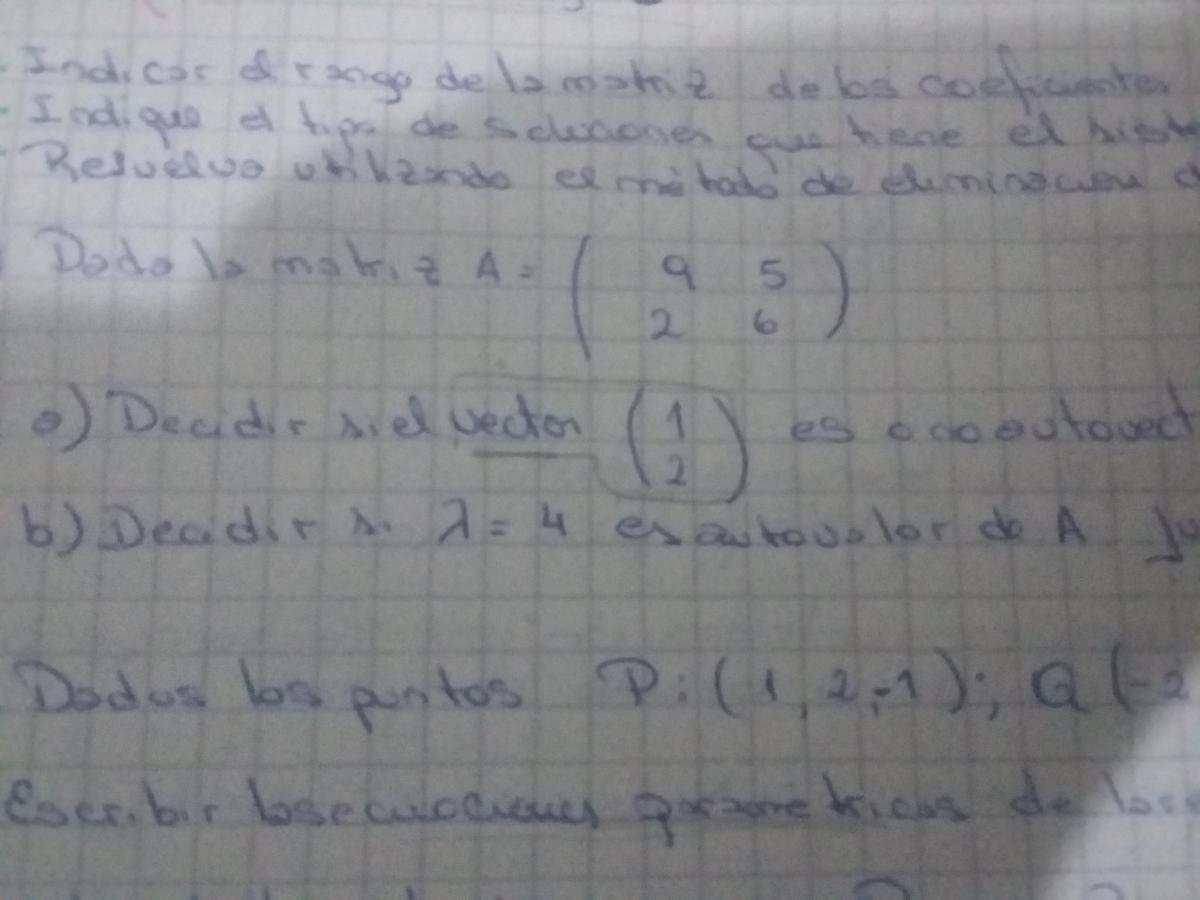 - Indicar el rango de la matriz de los coeficientes
- Indique el tipo de soluciones que tiene el sist
- Resuelva utilizando el método de eliminación d
Dada la matriz A = ( 9 5
2 6 )
a) Decidir si el vector ( 1
2 ) es o no autovect
b) Decidir si λ = 4 es autovalor de A ju
Dados los puntos P: (1, 2, -1); Q (-2
Escribir las ecuaciones paramétricas de la